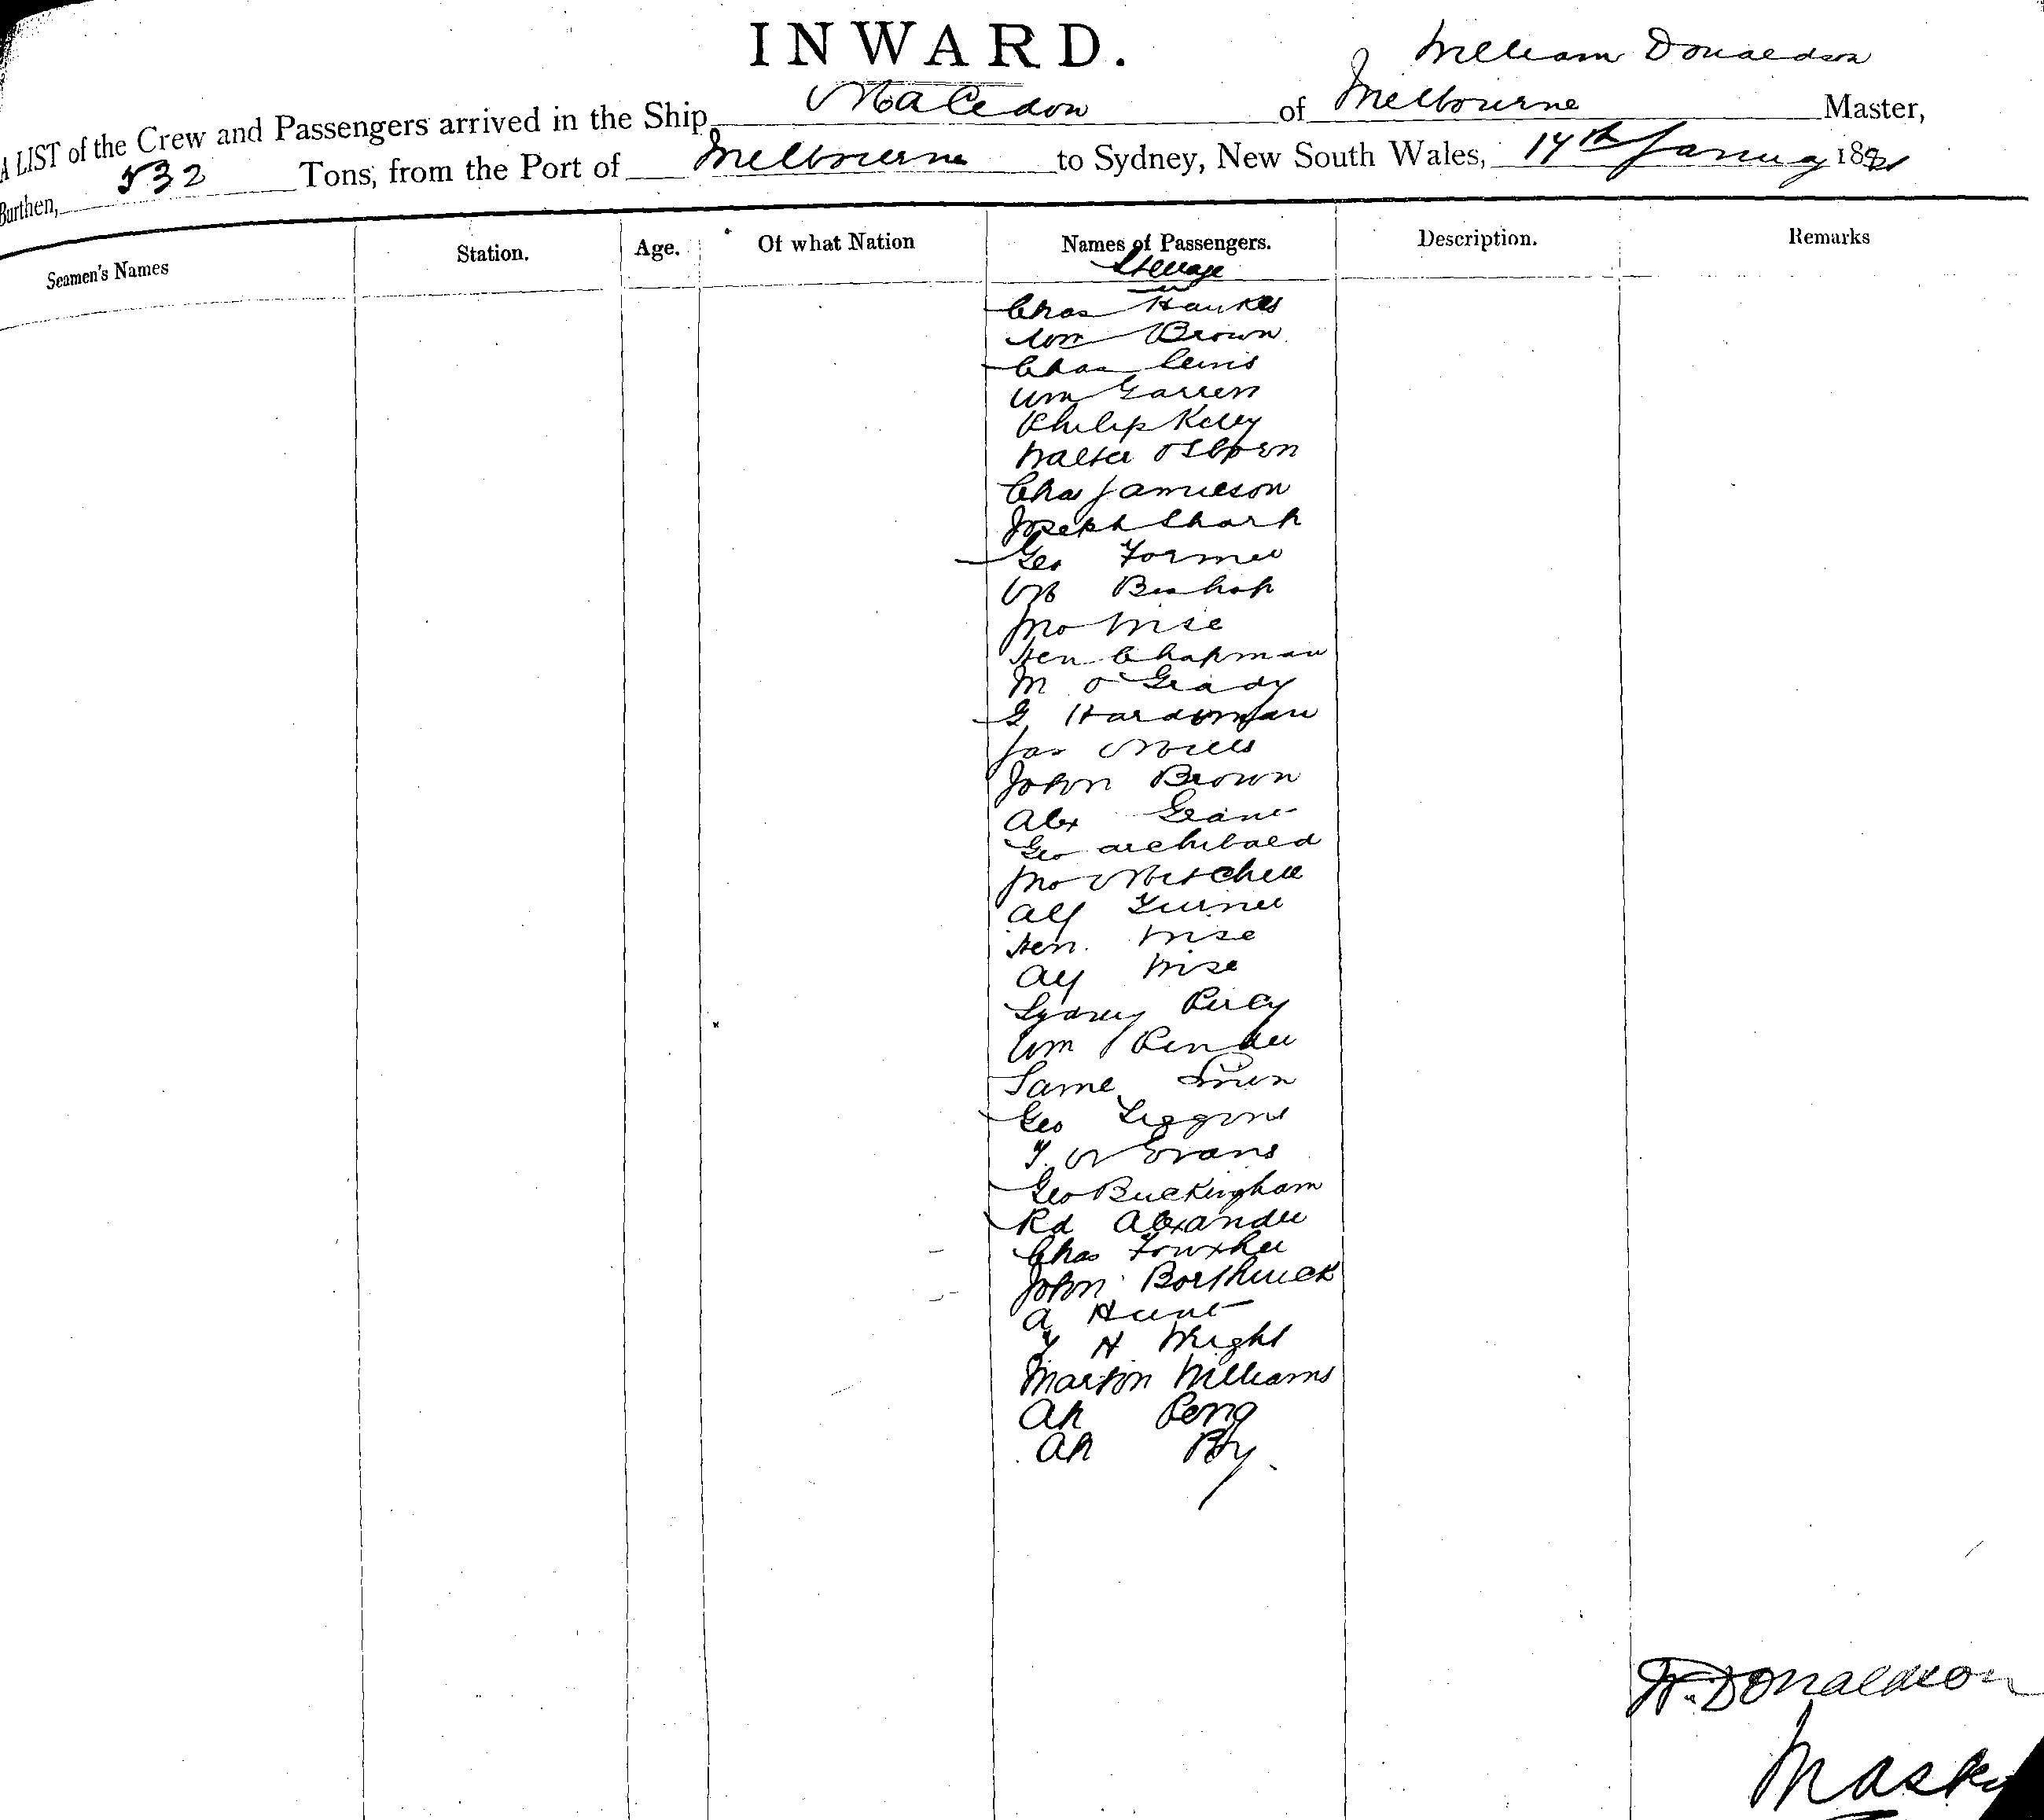 INWARD.
William Donaldson
A LIST of the Crew and Passengers arrived in the Ship Macedon of Melbourne Master,
Burthen, 532 Tons, from the Port of Melbourne to Sydney, New South Wales, 14th January 189
Seamen's Names Station. Age. Of what Nation Names of Passengers. Description. Remarks
Steerage
Chas Hawkes
Wm Brown
Chas Lewis
Wm
Philip Kelly
Walter Osborn
Chas Jamieson
Joseph Sharp
Geo
M Bishop
Jno Wise
Hen Chapman
M O'Grady
G
Jas Mills
John Brown
Alex Grant
Geo Archibald
Jno Mitchell
Alf Turner
Hen. Wise
Alf Wise
Sydney Percy
Wm
Geo
T. W Evans
Geo Buckingham
Rd Alexander
Chas
John Borthwick
A Hunt
T H Wright
Martin Williams
Ah Peng
Ah
W. Donaldson
Master